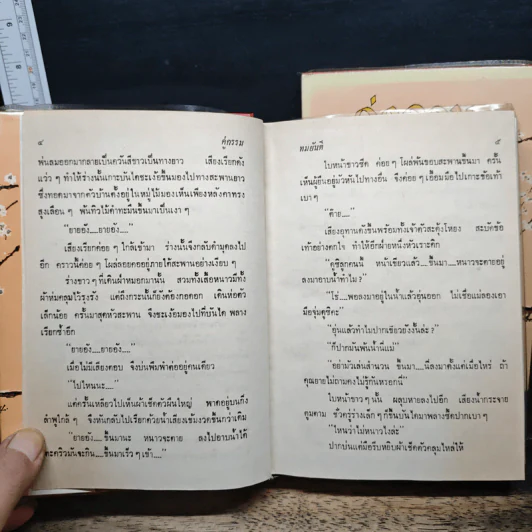 ๔ คู่กรรม
พ่นลมออกมากลายเป็นควันสีขาวเป็นทางยาว เสียงเรียกดัง
แว่ว ๆ ทำให้ร่างนั้นเกาะบันไดชะเง้อขึ้นมองไปทางสะพานยาว
ซึ่งทอดมาจากตัวบ้านตั้งอยู่ในหมู่ไม้มองเห็นเพียงหลังคาทรง
สูงเลือน ๆ พ้นทิวไม้ดำทะมึนขึ้นมาเป็นเงา ๆ
"ยายอัง....ยายอัง...."
เสียงเรียกค่อย ๆ ใกล้เข้ามา ร่างนั้นจึงกลับดำมุดลงไป
อีก คราวนี้ค่อย ๆ โผล่ลอยคออยู่ภายใต้สะพานอย่างเงียบ ๆ
ร่างขาว ๆ ที่เดินฝ่าหมอกมานั้น สวมทั้งเสื้อหนาวมีทั้ง
ผ้าห่มคลุมไว้รุงรัง แต่ถึงกระนั้นก็ยังต้องกอดอก เดินห่อตัว
เล็กน้อย ครั้นมาสุดหัวสะพาน จึงชะเง้อมองไปที่บันได พลาง
เรียกซ้ำอีก
"ยายอัง....ยายอัง...."
เมื่อไม่มีเสียงตอบ จึงบ่นพึมพำคออยู่คนเดียว
"ไปไหนนะ...."
แต่ครั้นเหลียวไปเห็นผ้าเช็ดตัวผืนใหญ่ พาดอยู่บนกิ่ง
ลำพูใกล้ ๆ จึงหันกลับไปเรียกด้วยน้ำเสียงเข้มงวดขึ้นกว่าเดิม
"ยายอัง....ขึ้นมานะ หนาวจะตาย ลงไปอาบน้ำได้
ทมยันตี ๕
ใบหน้าขาวซีด ค่อย ๆ โผล่พ้นขอบสะพานขึ้นมา ครั้น
เห็นผู้ยืนอยู่มัวหันไปทางอื่น จึงค่อย ๆ เอื้อมมือไปเกาะข้อเท้า
เบา ๆ
"ต๊าย...."
เสียงอุทานดังขึ้นพร้อมทั้งเจ้าตัวสะดุ้งโหยง สะบัดข้อ
เท้าอย่างตกใจ ทำให้อีกฝ่ายหนึ่งหัวเราะคิก
"ดูซิลูกคนนี้ หน้าเขียวแล้ว....ขึ้นมา....หนาวจะตายอยู่
ลงมาอาบน้ำทำไม ?"
"โธ่....พอลงมาอยู่ในน้ำแล้วอุ่นออก ไม่เชื่อแม่ลองเอา
มือจุ่มดูซิคะ"
"อุ่นแล้วทำไมปากเขียวยังงั้นล่ะ ?"
"ก็ปากมันพ้นน้ำนี่แม่"
"อย่ามัวเล่นสำนวน ขึ้นมา....นี่ลงมาตั้งแต่เมื่อไหร่ ถ้า
คุณยายไม่ถามคงไม่รู้กันหรอกนี่"
ใบหน้าขาว ๆ นั้น ผลุบหายลงไปอีก เสียงน้ำกระจาย
ตูมตาม ชั่วครู่ร่างเล็ก ๆ ก็ขึ้นบันไดมาพลางซี้ดปากเบา ๆ
"ไหนว่าไม่หนาวไงล่ะ"
ปากบ่นแต่มือรีบหยิบผ้าเช็ดตัวคลุมไหล่ให้